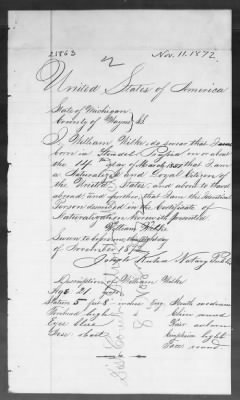 21863 Nov. 11. 1872.
2
United States of America
State of Michigan
County of Wayne } ss
I, William Wilke, do swear that I was
born in Prussia on or about
the 14th day of March 1851 that I am
a Naturalized and Loyal Citizen of
the United States, and about to travel
abroad, and further, that I am the identical
Person described in the Certificate of
Naturalization herewith presented
William Wilke
Sworn to before me this day
of November 187
Joseph Kuhn Notary Public
Description of William Wilke
Age 21 years
Stature 5 feet 8 inches Eng. Mouth medium
Forehead high Chin round
Eyes blue Hair auburn
Nose short Complexion light
Face round